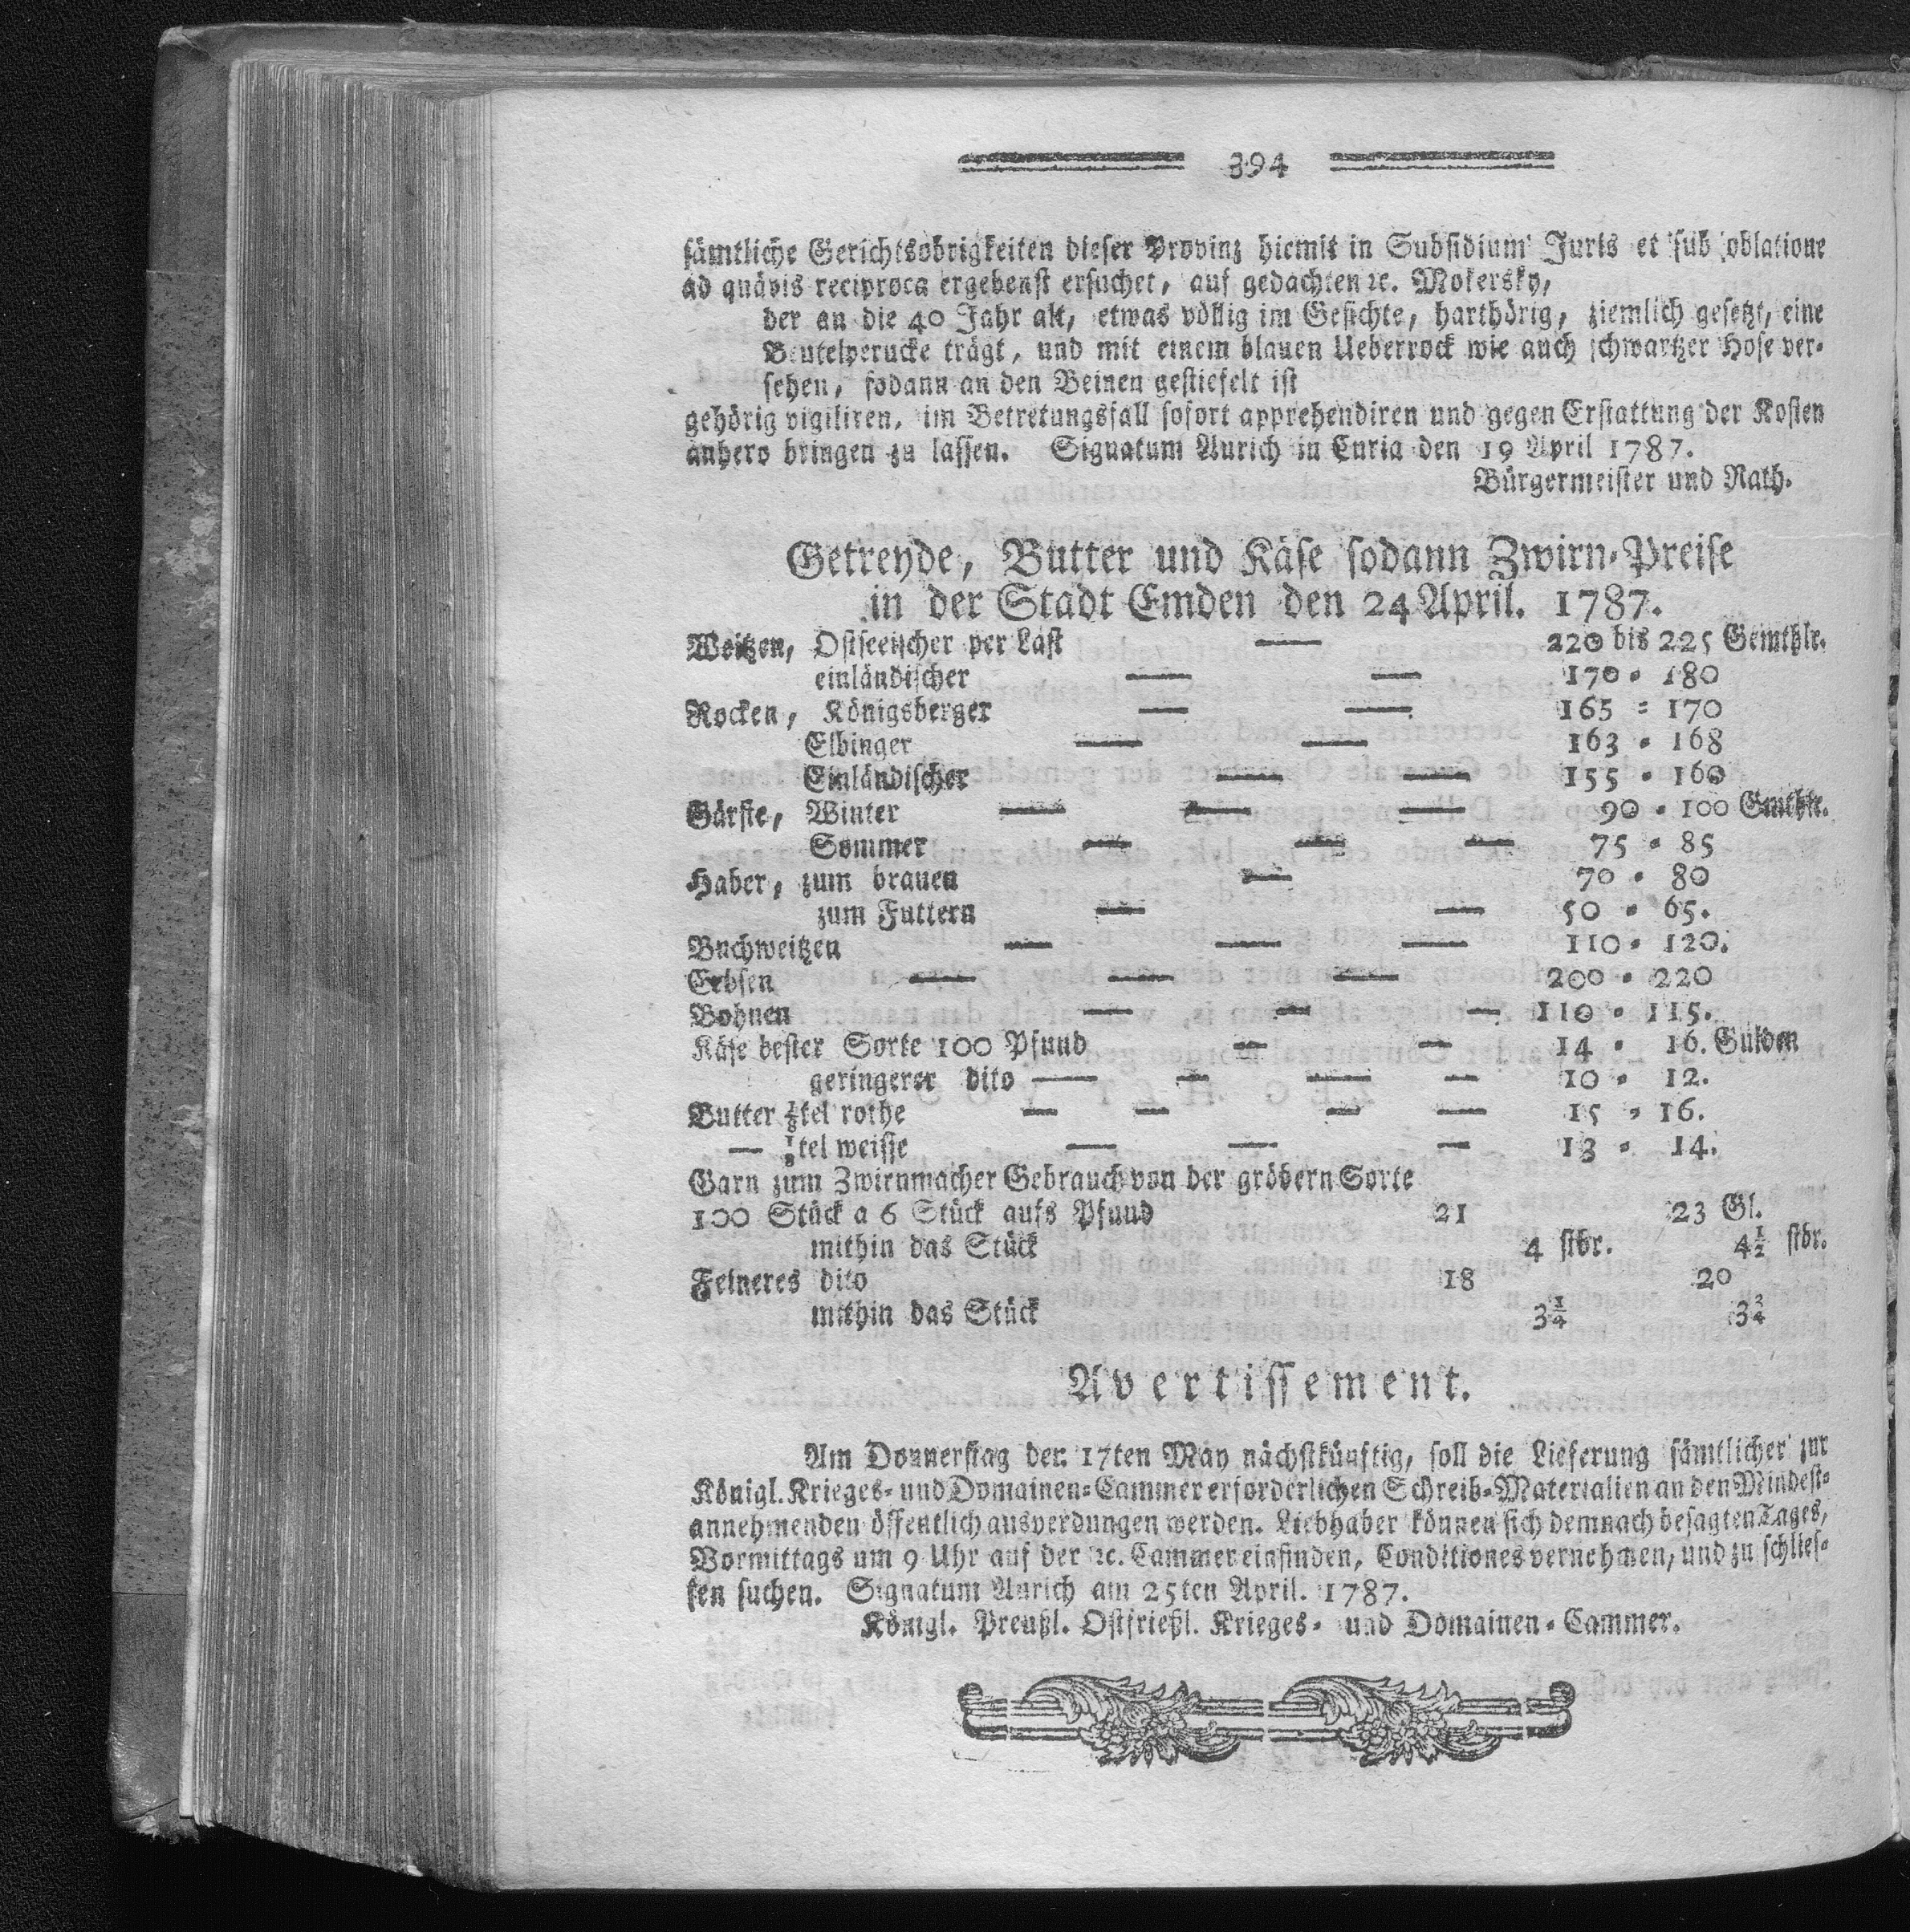 394
sämtliche Gerichtsobrigkeiten dieser Provinz hiemit in Subsidium Juris et sub oblatione
ad quävis reciproca ergebenst ersuchet, auf gedachten ꝛc. Mokersky,
der an die 40 Jahr alt, etwas völlig im Gesichte, harthörig, ziemlich gesetzt, eine
Beutelperucke trägt, und mit einem blauen Ueberrock wie auch schwartzer Hose ver-
sehen, sodann an den Beinen gestiefelt ist
gehörig vigiliren, im Betretungsfall sofort apprehendiren und gegen Erstattung der Kosten
anhero bringen zu lassen. Signatum Aurich in Curia den 19 April 1787.
Bürgermeister und Rath.
Getreyde, Butter und Käse sodann Zwirn-Preise
in der Stadt Emden den 24 April. 1787.
Weitzen, Ostseeischer per Last — 220 bis 225 Gemthlr.
einländischer — — 170 - 180
Rocken, Königsberger — — 165 = 170
Elbinger — — 163 - 168
Einländischer — — 155 - 160
Gärste, Winter — — — 90 - 100 Gmthlr.
Sommer — — — 75 - 85
Haber, zum brauen — 70 - 80
zum Futtern — — 50 - 65.
Buchweitzen — — — 110 - 120.
Erbsen — — — 200 - 220
Bohnen — — — 110 - 115.
Käse bester Sorte 100 Pfund — — 14 - 16. Gulden
geringerer dito — — — — 10 - 12.
Butter ⅛tel rothe — — — — 15 - 16.
— ⅛tel weisse — — — 13 - 14.
Garn zum Zwirnmacher Gebrauch von der gröbern Sorte
100 Stück a 6 Stück aufs Pfund 21 23 Gl.
mithin das Stück 4 stbr. 4½ stbr.
Feineres dito 18 20
mithin das Stück 3¼ 3¾
Avertissement.
Am Donnerstag den 17ten May nächstkünftig, soll die Lieferung sämtlicher zur
Königl. Krieges- und Domainen-Cammer erforderlichen Schreib-Materialien an den Mindest-
annehmenden öffentlich ausverdungen werden. Liebhaber können sich demnach besagten Tages,
Vormittags um 9 Uhr auf der ꝛc. Cammer einfinden, Conditiones vernehmen, und zu schlies-
sen suchen. Signatum Aurich am 25ten April. 1787.
Königl. Preußl. Ostfrießl. Krieges- und Domainen-Cammer.